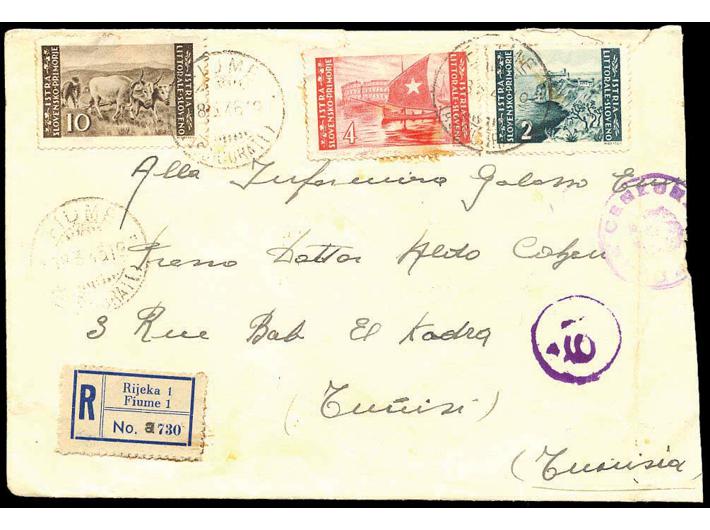 ISTRA
SLOVENSKO-PRIMORJE
ISTRIA
LITTORALE-SLOVENO
10
ISTRA
SLOVENSKO-PRIMORJE
ISTRIA
LITTORALE-SLOVENO
4
ISTRA
SLOVENSKO-PRIMORJE
ISTRIA
LITTORALE-SLOVENO
2
FIUME
FIUME
Alla Infermiera Galasso
Presso Dottor Aldo Cohen
3 Rue Bab El Kadra
(Tunisi)
(Tunisia)
R
Rijeka 1
Fiume 1
No. a730